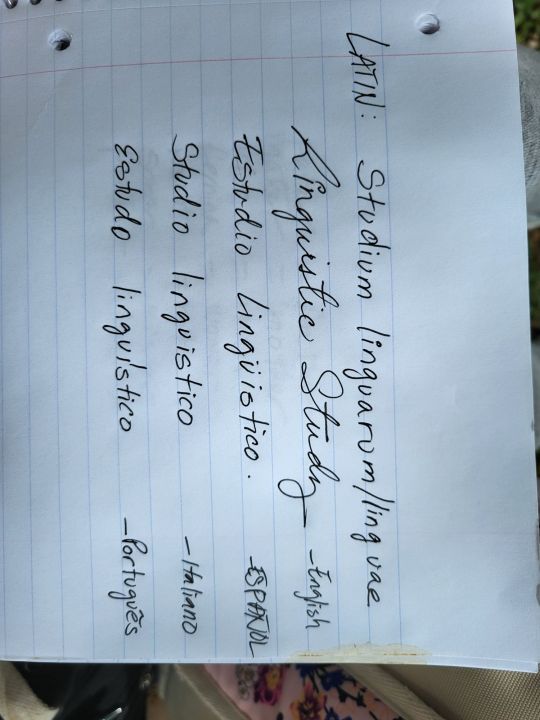 LATIN: Studium linguarum/linguae
Linguistic Study - English
Estudio Lingüistico. - ESPAÑOL
Studio linguistico - Italiano
Estudo linguístico - Português